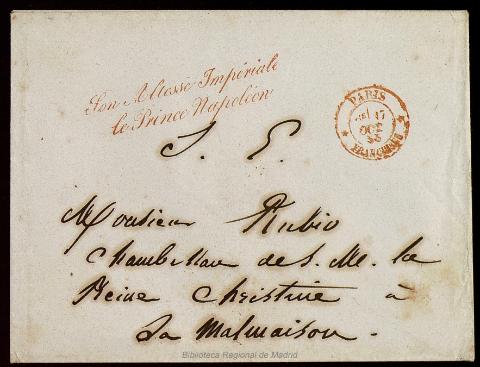 Son Altesse Impériale
le Prince Napoléon
PARIS
17
OCT
55
FRANCHISE
S. E.
Monsieur Rubio
Chambellan de S. M. la
Reine Christine à
La Malmaison.
Biblioteca Regional de Madrid